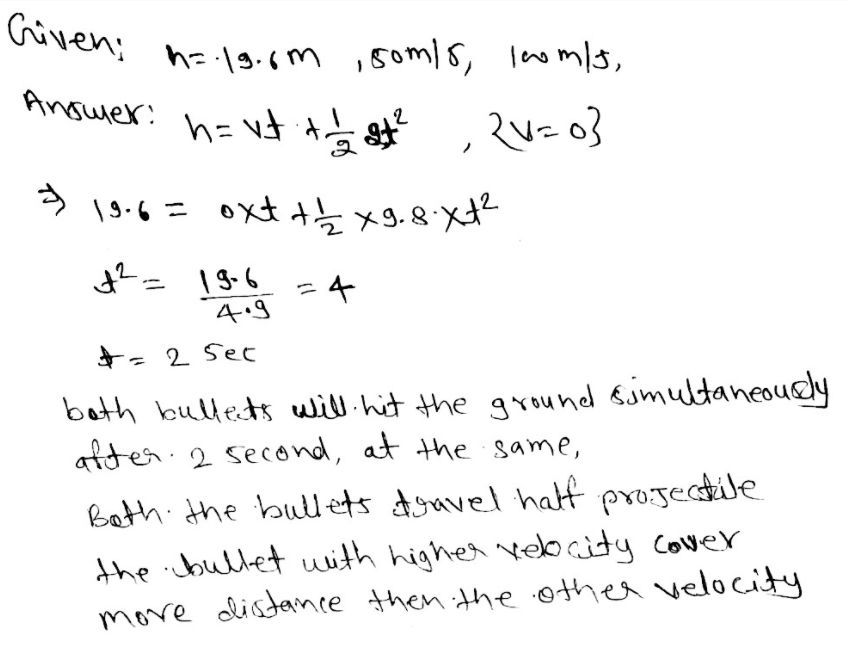 Given: h= 19.6m , 50m/s, 100 m/s,
Answer: h= vt + 1/2 gt² , {v=0}
⇒ 19.6 = 0xt + 1/2 x 9.8 x t²
t² = 19.6/4.9 = 4
t = 2 sec
both bullets will hit the ground simultaneously
after 2 second, at the same,
Both the bullets travel half projectile
the bullet with higher velocity cover
more distance then the other velocity